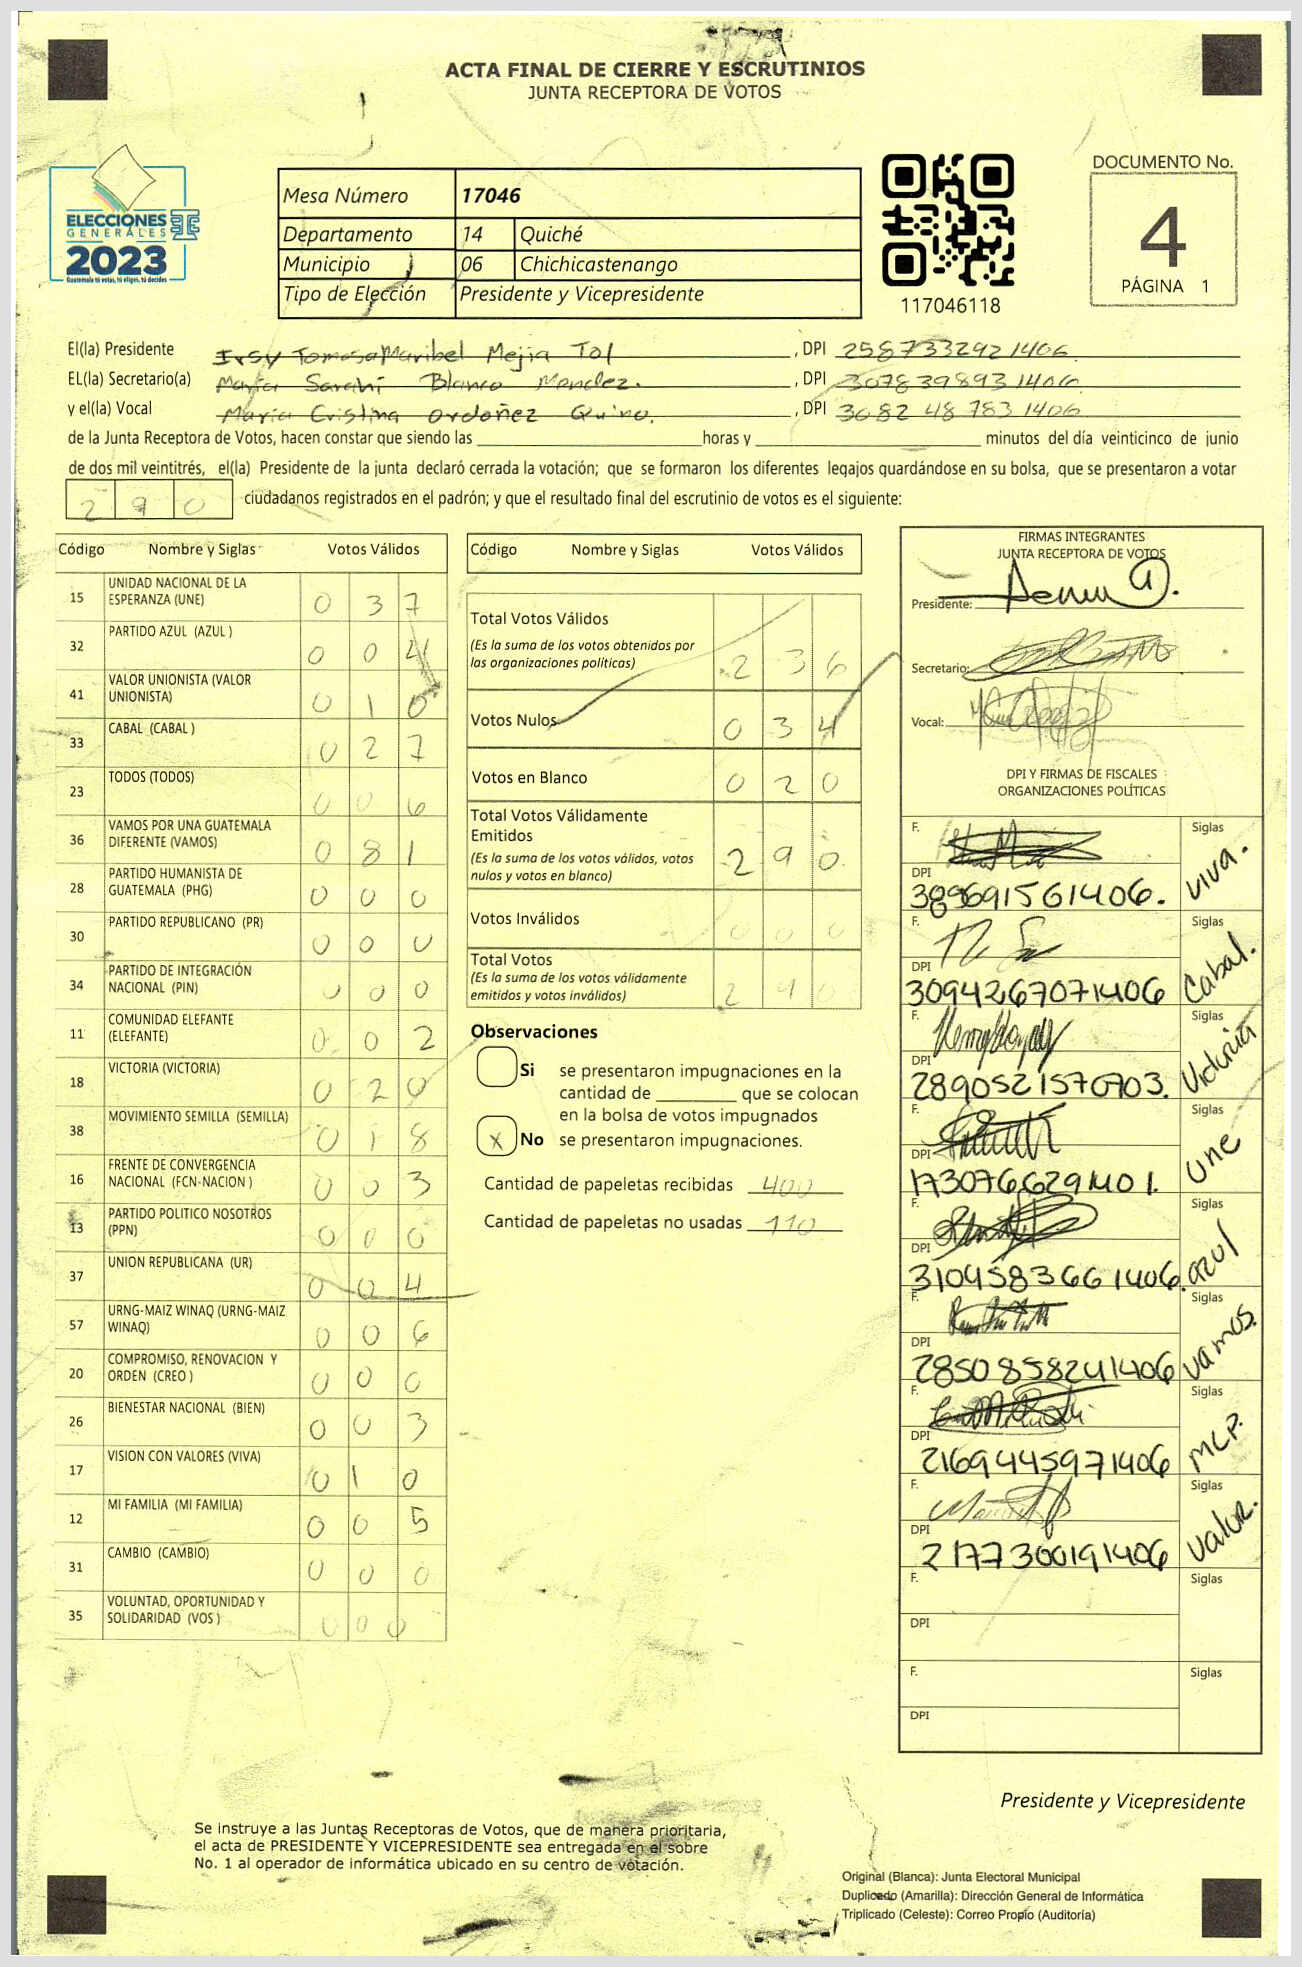 ACTA FINAL DE CIERRE Y ESCRUTINIOS
JUNTA RECEPTORA DE VOTOS
ELECCIONES
GENERALES
2023
Guatemala tú votas, tú eliges, tú decides
Mesa Número 17046
Departamento 14 Quiché
Municipio 06 Chichicastenango
Tipo de Elección Presidente y Vicepresidente
117046118
DOCUMENTO No.
4
PÁGINA 1
El(la) Presidente Irsy Tomasa Maribel Mejia Tol , DPI 2587332921406
EL(la) Secretario(a) Maria Sarahi Blanco Mendez. , DPI 3078398931406
y el(la) Vocal Maria Cristina Ordoñez Quino. , DPI 3082487831406
de la Junta Receptora de Votos, hacen constar que siendo las horas y minutos del día veinticinco de junio
de dos mil veintitrés, el(la) Presidente de la junta declaró cerrada la votación; que se formaron los diferentes legajos guardándose en su bolsa, que se presentaron a votar
290 ciudadanos registrados en el padrón; y que el resultado final del escrutinio de votos es el siguiente:
Código Nombre y Siglas Votos Válidos
15 UNIDAD NACIONAL DE LA ESPERANZA (UNE) 0 3 7
32 PARTIDO AZUL (AZUL ) 0 0 4
41 VALOR UNIONISTA (VALOR UNIONISTA) 0 1 0
33 CABAL (CABAL ) 0 2 7
23 TODOS (TODOS) 0 0 6
36 VAMOS POR UNA GUATEMALA DIFERENTE (VAMOS) 0 8 1
28 PARTIDO HUMANISTA DE GUATEMALA (PHG) 0 0 0
30 PARTIDO REPUBLICANO (PR) 0 0 0
34 PARTIDO DE INTEGRACIÓN NACIONAL (PIN) 0 0 0
11 COMUNIDAD ELEFANTE (ELEFANTE) 0 0 2
18 VICTORIA (VICTORIA) 0 2 0
38 MOVIMIENTO SEMILLA (SEMILLA) 0 1 8
16 FRENTE DE CONVERGENCIA NACIONAL (FCN-NACION ) 0 0 3
13 PARTIDO POLITICO NOSOTROS (PPN) 0 0 0
37 UNION REPUBLICANA (UR) 0 0 4
57 URNG-MAIZ WINAQ (URNG-MAIZ WINAQ) 0 0 6
20 COMPROMISO, RENOVACION Y ORDEN (CREO ) 0 0 0
26 BIENESTAR NACIONAL (BIEN) 0 0 3
17 VISION CON VALORES (VIVA) 0 1 0
12 MI FAMILIA (MI FAMILIA) 0 0 5
31 CAMBIO (CAMBIO) 0 0 0
35 VOLUNTAD, OPORTUNIDAD Y SOLIDARIDAD (VOS ) 0 0 0
Código Nombre y Siglas Votos Válidos
Total Votos Válidos 2 3 6
(Es la suma de los votos obtenidos por
las organizaciones políticas)
Votos Nulos 0 3 4
Votos en Blanco 0 2 0
Total Votos Válidamente
Emitidos 2 9 0
(Es la suma de los votos válidos, votos
nulos y votos en blanco)
Votos Inválidos 0 0 0
Total Votos 2 9 0
(Es la suma de los votos válidamente
emitidos y votos inválidos)
Observaciones
Si se presentaron impugnaciones en la
cantidad de que se colocan
en la bolsa de votos impugnados
X No se presentaron impugnaciones.
Cantidad de papeletas recibidas 400
Cantidad de papeletas no usadas 110
FIRMAS INTEGRANTES
JUNTA RECEPTORA DE VOTOS
Presidente:
Secretario:
Vocal:
DPI Y FIRMAS DE FISCALES
ORGANIZACIONES POLÍTICAS
F. Siglas
DPI viva.
F. Siglas
DPI 3094267071406 Cabal.
F. Siglas
DPI 2890521570703. Victoria
F. Siglas
DPI 1730766291401. une
F. Siglas
DPI 3104583661406. azul
F. Siglas
DPI 2850858241406 vamos.
F. Siglas
DPI 2169445971406 MLP.
F. Siglas
DPI 2177300191406 valor.
F. Siglas
DPI
F. Siglas
DPI
Presidente y Vicepresidente
Se instruye a las Juntas Receptoras de Votos, que de manera prioritaria,
el acta de PRESIDENTE Y VICEPRESIDENTE sea entregada en el sobre
No. 1 al operador de informática ubicado en su centro de votación.
Original (Blanca): Junta Electoral Municipal
Duplicado (Amarilla): Dirección General de Informática
Triplicado (Celeste): Correo Propio (Auditoría)